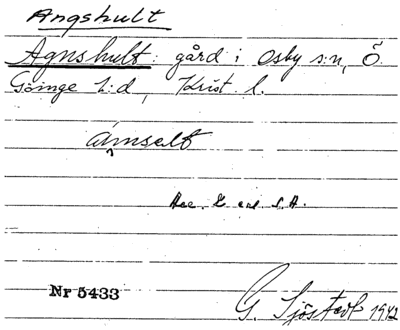 Angshult
Agnshult: gård i Osby s:n, Ö.
Göinge h:d, Krist. l.
ámselt
Acc. & enl. S.A.
Nr 5433
G. Sjöstedt 1942